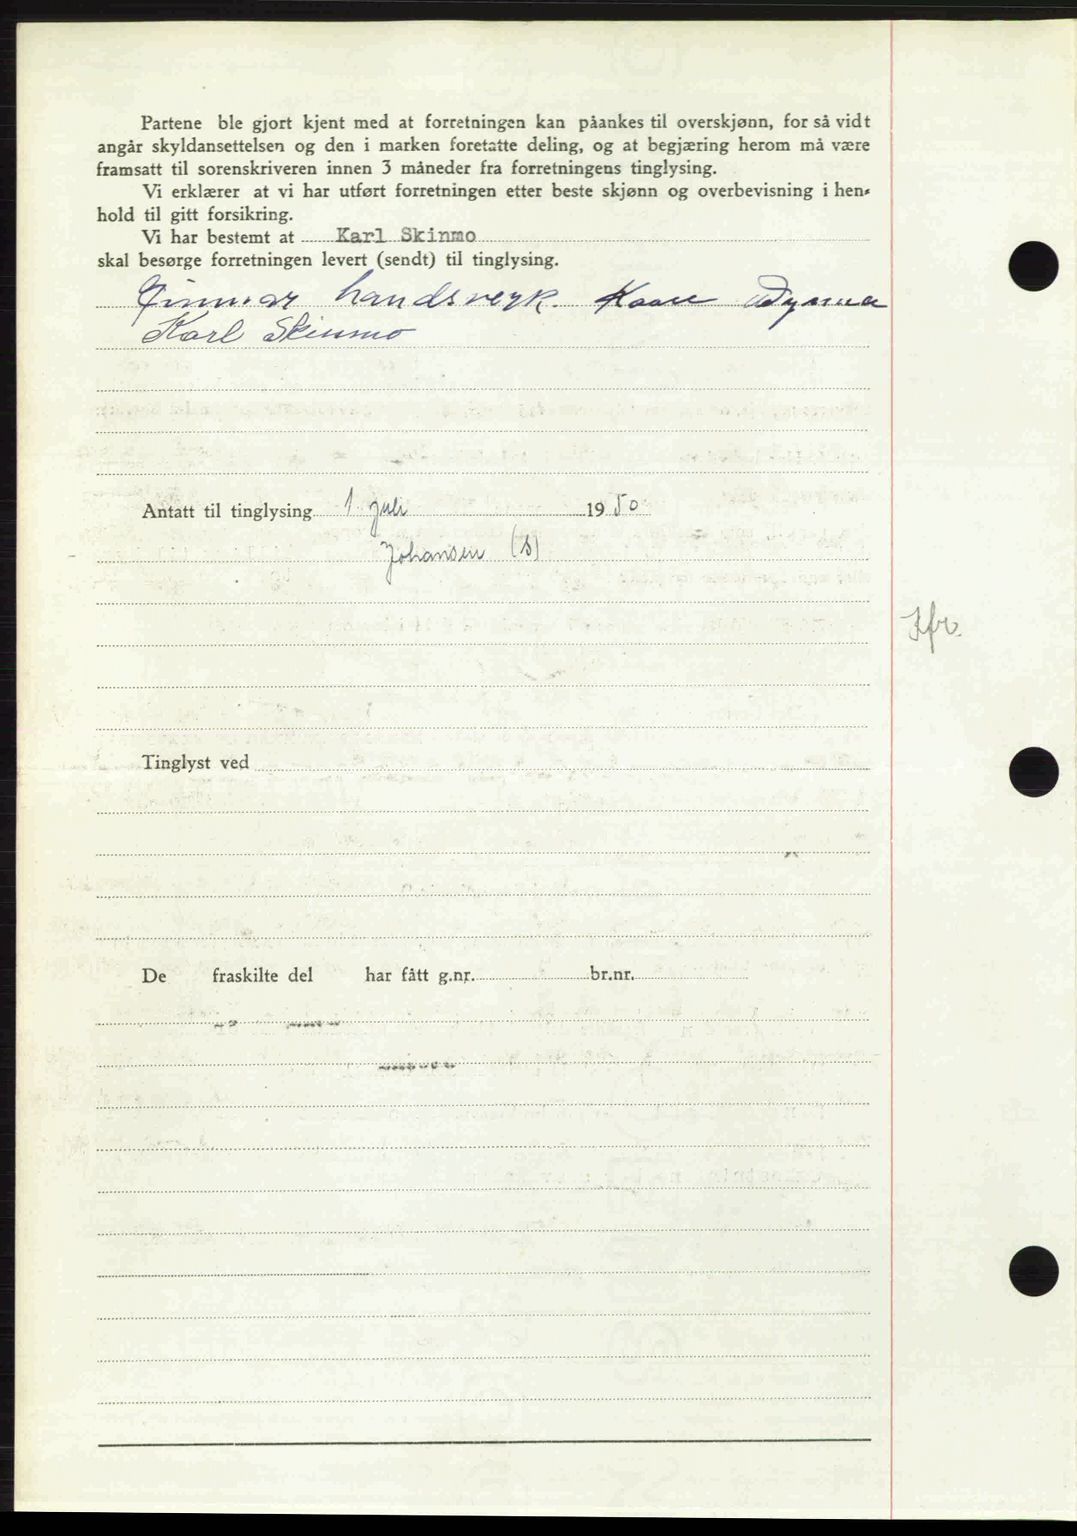 Partene ble gjort kjent med at forretningen kan påankes til overskjønn, for så vidt
angår skyldansettelsen og den i marken foretatte deling, og at begjæring herom må være
framsatt til sorenskriveren innen 3 måneder fra forretningens tinglysing.
Vi erklærer at vi har utført forretningen etter beste skjønn og overbevisning i hen-
hold til gitt forsikring.
Vi har bestemt at Karl Skinmo
skal besørge forretningen levert (sendt) til tinglysing.
Kaare
Karl Skinmo
Antatt til tinglysing 1 juli 1950
Johansen (s)
Jfr.
Tinglyst ved
De fraskilte del har fått g.nr. br.nr.